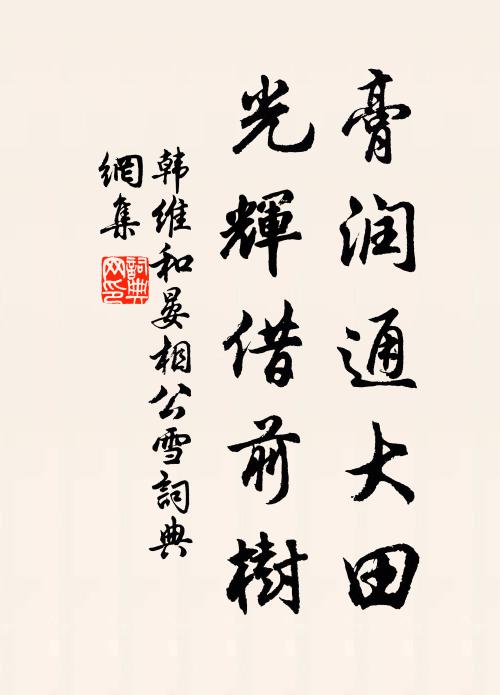 膏润通大田
光輝借前樹
韩维和晏相公雪詞典
網集
詞典网印